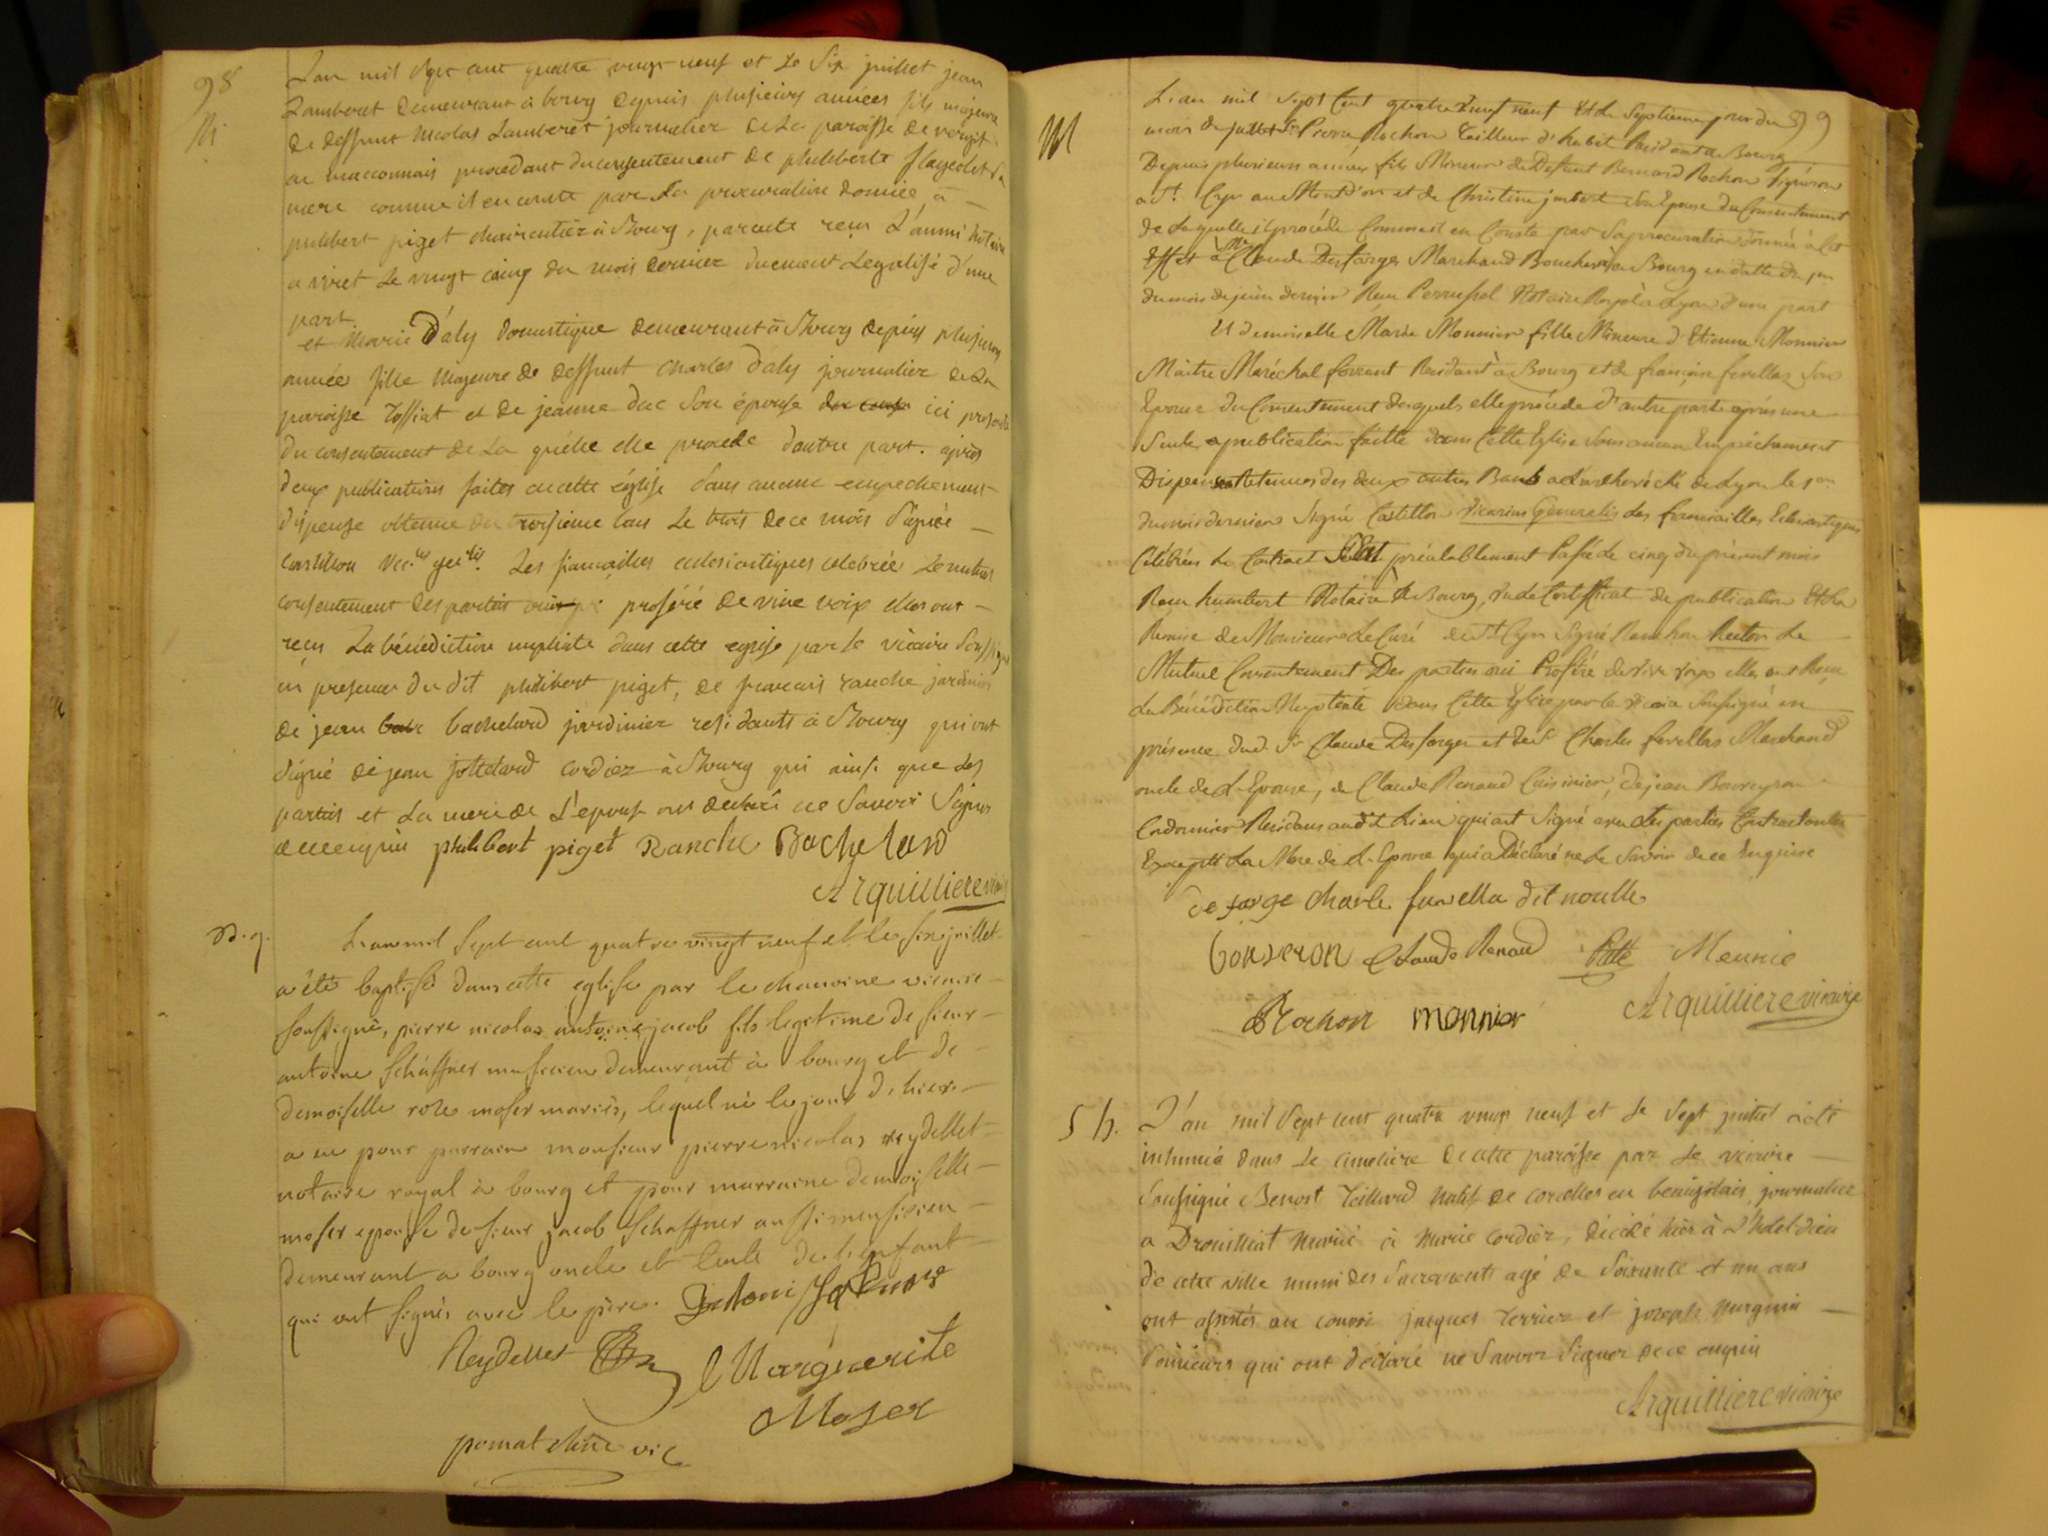 98
M.
L'an mil sept cent quatre vingt neuf et le six juillet jean
Lamberet demeurant à bourg depuis plusieurs années fils majeur
de deffunt nicolas Lamberet journalier de La paroisse de
en macconnais procedant du consentement de philiberte flageolet sa
mere comme il en conste par La procuration donnée à
philibert piget chaircutier à Bourg, par acte reçu notaire
a viret Le vingt cinq du mois dernier duement Legalisé d'une
part
et Marie D'aly domestique demeurant à Bourg depuis plusieurs
années fille Majeure de deffunt charles D'aly journalier de La
paroisse Tossiat et de jeanne duc son épouse ici presente
du consentement de La quelle elle procede d'autre part. après
deux publications faites en cette église sans aucun empechement
dispense obtenue du troisieme ban Le trois de ce mois signée
castillon vic. gen. Les fiançailles eclesiastiques celebrées Le mutuel
consentement des parties proféré de vive voix elles ont
reçu La bénédiction nuptiale dans cette eglise par le vicaire soussigné
en presence du dit philibert piget, de francois ranche jardinier
de jean bachelard jardinier residants à Bourg qui ont
signé de jean jottelard cordier à Bourg qui ainsi que Les
parties et La mere de L'epouse ont declaré ne savoir signer
de ce enquis philibert piget Ranche Bachelard
Arquilliere vicaire
B. g.
L'an mil sept cent quatre vingt neuf et le six juillet
a été baptisé dans cette eglise par le chanoine vicaire
soussigné, pierre nicolas antoine jacob fils legitime de sieur
antoine schaffner musicien demeurant à bourg et de
demoiselle rose moser mariés, lequel né le jour d'hier
a eu pour parrain monsieur pierre nicolas reydellet
notaire royal à bourg et pour marraine demoiselle
moser epouse de sieur jacob schaffner aussi musicien
demeurant a bourg oncle et tante de l'enfant
qui ont signés avec le père. Antoni
Reydellet Marguerite
Moser
pomat chne vic
99
M
L'an mil sept Cent quatre vingt neuf et le septieme jour du
mois de juillet Sr Pierre Rochon tailleur d'habit Residant a Bourg
Depuis plusieurs années fils Mineur de Deffunt Bernard Rochon Vigneron
a St. Cyr au Mont d'or et de Christine jmbert son Epouse du Consentement
de Laquelle il procéde Comme il en Conste par sa procuration donnée à Cet
Effet à Mr Claude Desfarges Marchand Boucher à Bourg en datte du
du mois de juin dernier Recu Perrussel Notaire Royal à Lyon d'une part
Et demoiselle Marie Monnier fille Mineure d'Etienne Monnier
Maitre Maréchal ferrant Residant à Bourg et de françoise fevellas son
Epouse du Consentement desquels elle procéde d'autre part après une
seule publication faitte dans Cette Eglise sans aucun Empéchement
Dispense obtenues des deux autres Bans a L'archevêché de Lyon le
du mois dernier signé Castillon vicarius Generalis les fiancailles Eclesiastiques
Célébrées Le Contract Civil préalablement Passé le cinq du présent mois
Recu humbert Notaire à Bourg, vu le Certifficat de publication et La
Remise de Monsieur Le Curé de St Cyr signé Rector Le
Mutuel Consentement Des parties oui Proféré de vive voix elles ont Recu
La Bénédiction Nuptiale dans Cette Eglise par le vicaire soussigné en
présence dud. Sr Claude Desfarges et de Sr Charles fevellas Marchand
oncle de L'Epouse, de Claude Renaud Cuisinier, de jean Bonneron
Cordonnier Residans audit Lieu qui ont signé avec Les parties Contractantes
Excepté La Mere de L'Epouse qui a Déclaré ne Le savoir de ce Enquise
de farge charle favella dit noulle
Claude Renaud Meunié
Rochon monnier Arquilliere vicaire
5 h.
L'an mil sept cent quatre vingt neuf et le sept juillet a été
inhumé dans Le cimetiere de cette paroisse par Le vicaire
soussigné Benoit Teillard natif de corcelles en beaujolais journalier
a Drouilliat marié à marie cordier, décédé hier à L'hotel dieu
de cette ville muni des sacrements agé de soixante et un ans
ont assistés au convoi jacques Terrier et joseph marguin
soinieurs qui ont déclaré ne savoir signer de ce enquis
Arquilliere vicaire